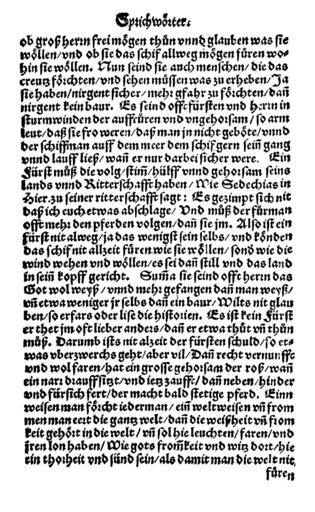 Sprichwörter.
ob groß herrn frei mögen thůn vnnd glauben was sie
wöllen/vnd ob sie das schif allweg mögen füren wo-
hin sie wöllen. Nun seind sie auch menschen/die das
creutz förchten/vnd sehen müssen was zu erheben/Ja
sie haben/nirgent sicher/mehr gfahr zu förchten/dañ
nirgent kein baur. Es seind offt fürsten vnd herrn in
sturmwinden der auffrüren vnd vngehorsam/so arm
leut/daß sie fro weren/daß man jn nicht geböte/vnnd
der schiffman auff dem meer dem schif gern sein gang
vnnd lauff ließ/wañ er nur darbei sicher were. Ein
Fürst můß die volg/stiñ/hülff vnnd gehorsam seins
lands vnnd Ritterschafft haben/Wie Sedechias in
Hier.zu seiner ritterschafft sagt: Es gezimpt sich nit
daß ich euch etwas abschlage/Vnd můß der fürman
offt mehr den pferden volgen/dañ sie jm. Also ist ein
fürst nit alweg/ja das wenigst sein selbs/vnd köndeñ
das schif nit allzeit füren wie sie wöllen/sond wie die
wind wehen vnd wöllen/es sei dañ still vnd das land
in seiñ kopff gericht. Suma sie seind offt herrn das
Got wol weyß/vnnd mehr gefangen dañ man weyß/
vñ etwa weniger jr selbs dañ ein baur/Wilts nit glau
ben/so erfars oder lise die historien. Es ist kein Fürst
er thet jm offt lieber anders/dañ er etwa thůt vñ thůn
můß. Darumb ists nit alzeit der fürsten schuld/so et-
was vberzwerchs geht/aber vil/Dañ recht vernunfft
vnd wol faren/hat ein grosse gehorsam der roß/wañ
ein narr drauff sitzt/vnd ietz zauffe/dañ neben/hinder
vnd fürsich fert/der macht bald stetige pferd. Einn
weisen man förcht iederman/eiñ weltweisen vñ from
men man eert die gantz welt/dañ die weißheit vñ from
keit gehört in die welt/vñ sol hie leuchten/faren/vnd
jren lon haben/Wie gots fromkeit vnd witz dort/hie
ein thorheit vnd sünd sein/als damit man die welt nit
füren